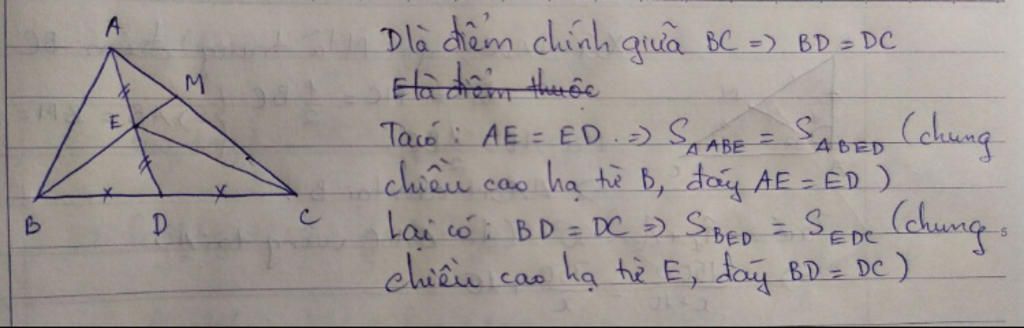 A
M
E
B
D
C
D là điểm chính giữa BC => BD = DC
E là điểm thuộc
Ta có : AE = ED => S△ABE = S△BED (chung
chiều cao hạ từ B, đáy AE = ED)
Lại có : BD = DC => SBED = SEDC (chung
chiều cao hạ từ E, đáy BD = DC)